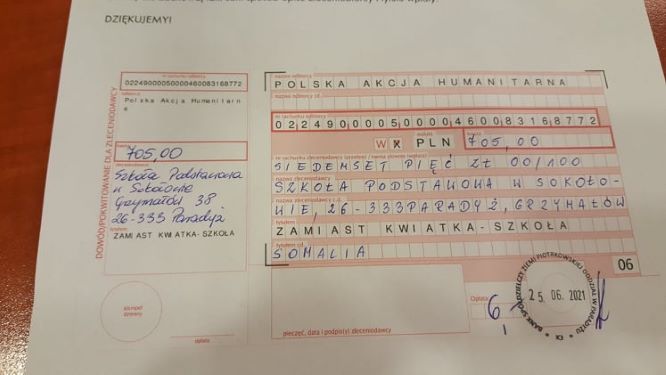 DZIĘKUJEMY!
DOWÓD/POKWITOWANIE DLA ZLECENIODAWCY
nr rachunku odbiorcy
02249000050000460083168772
odbiorca
Polska Akcja Humanitarn
a
kwota
705,00
zleceniodawca
Szkoła Podstawowa
w Sokołowie
Grzymałów 38
26-333 Paradyż
tytułem
ZAMIAST KWIATKA-SZKOŁA
stempel
dzienny
opłata
nazwa odbiorcy
POLSKA AKCJA HUMANITARNA
nazwa odbiorcy cd.
nr rachunku odbiorcy
02249000050000460083168772
W X PLN 705,00
waluta
kwota
SIEDEMSET PIĘĆ ZŁ 00/100
nazwa zleceniodawcy
SZKOŁA PODSTAWOWA W SOKOŁO-
nazwa zleceniodawcy cd.
WIE, 26-333 PARADYŻ, GRZYMAŁÓW
tytułem
ZAMIAST KWIATKA-SZKOŁA
tytułem cd.
SOMALIA
06
pieczęć, data i podpis(y) zleceniodawcy
Opłata
6,
BANK SPÓŁDZIELCZY ZIEMI PIOTRKOWSKIEJ ODDZIAŁ W PARADYŻU
25. 06. 2021